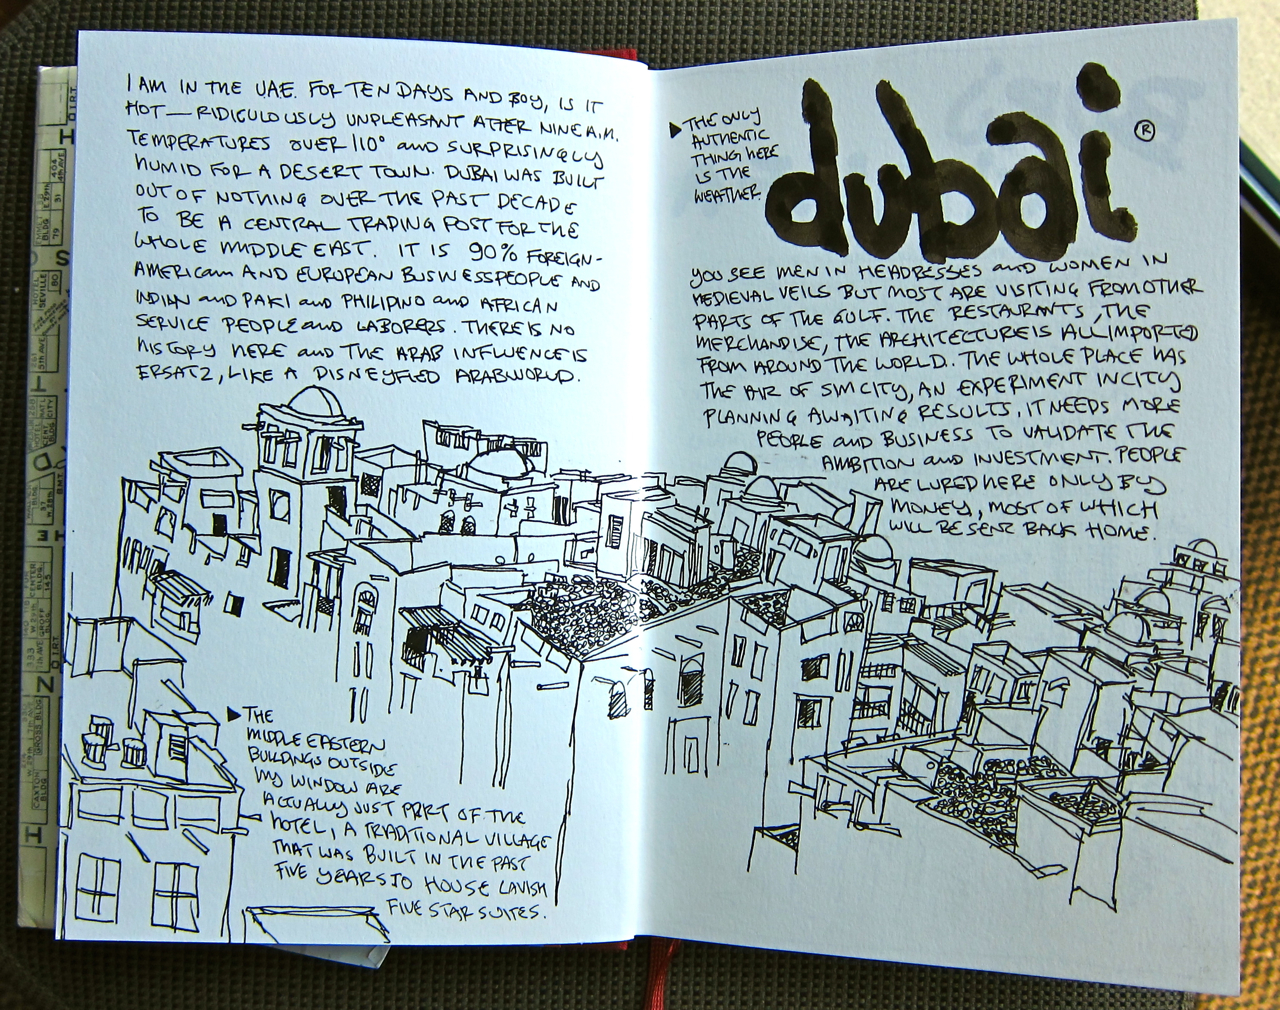 I AM IN THE UAE. FOR TEN DAYS AND BOY, IS IT
HOT — RIDICULOUSLY UNPLEASANT AFTER NINE A.M.
TEMPERATURES OVER 110° AND SURPRISINGLY
HUMID FOR A DESERT TOWN. DUBAI WAS BUILT
OUT OF NOTHING OVER THE PAST DECADE
TO BE A CENTRAL TRADING POST FOR THE
WHOLE MIDDLE EAST. IT IS 90% FOREIGN-
AMERICAN AND EUROPEAN BUSINESSPEOPLE AND
INDIAN AND PAKI AND PHILIPINO AND AFRICAN
SERVICE PEOPLE AND LABORERS. THERE IS NO
HISTORY HERE AND THE ARAB INFLUENCE IS
ERSATZ, LIKE A DISNEYFIED ARABWORLD.
▶ THE
MIDDLE EASTERN
BUILDINGS OUTSIDE
MY WINDOW ARE
ACTUALLY JUST PART OF THE
HOTEL, A TRADITIONAL VILLAGE
THAT WAS BUILT IN THE PAST
FIVE YEARS TO HOUSE LAVISH
FIVE STAR SUITES.
▶ THE ONLY
AUTHENTIC
THING HERE
IS THE
WEATHER.
dubai ®
YOU SEE MEN IN HEADRESSES AND WOMEN IN
MEDIEVAL VEILS BUT MOST ARE VISITING FROM OTHER
PARTS OF THE GULF. THE RESTAURANTS, THE
MERCHANDISE, THE ARCHITECTURE IS ALL IMPORTED
FROM AROUND THE WORLD. THE WHOLE PLACE HAS
THE AIR OF SIMCITY, AN EXPERIMENT IN CITY
PLANNING AWAITING RESULTS. IT NEEDS MORE
PEOPLE AND BUSINESS TO VALIDATE THE
AMBITION AND INVESTMENT. PEOPLE
ARE LURED HERE ONLY BY
MONEY, MOST OF WHICH
WILL BE SENT BACK HOME.